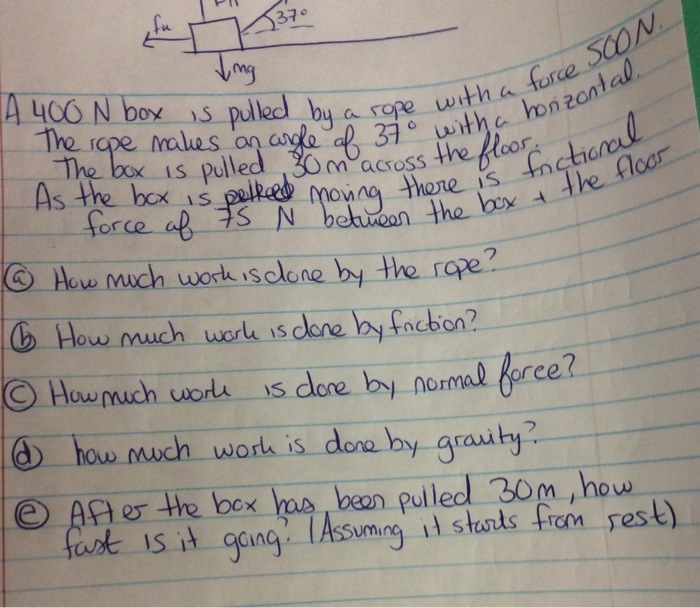 fk
37°
mg
A 400 N box is pulled by a rope with a force 500N.
The rope makes an angle of 37° with a horizontal.
The box is pulled 30m across the floor.
As the box is moving there is frictional
force of 75 N between the box + the floor
ⓐ How much work is done by the rope?
ⓑ How much work is done by friction?
ⓒ How much work is done by normal force?
ⓓ how much work is done by gravity?
ⓔ After the box has been pulled 30m, how
fast is it going? (Assuming it starts from rest)